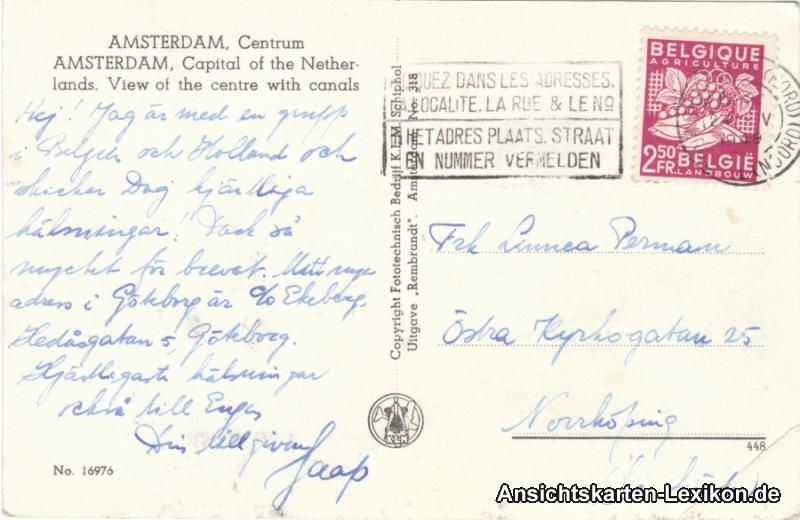 AMSTERDAM, Centrum
AMSTERDAM, Capital of the Nether-
lands. View of the centre with canals
Hej! Jag är med en grupp
i Belgien och Holland och
skickar Dag hjärtliga
hälsningar! Tack så
mycket för brevet. Mitt nya
adress i Göteborg är c/o Ekeberg,
Hedåsgatan 5, Göteborg.
Hjärtligaste hälsningar
också till Enges
Din tillgivne
Jaap
No. 16976
Copyright Fototechnisch Bedrijf K.L.M. Schiphol
Uitgave „Rembrandt". Amsterdam No. 318
K.L.M
DANS LES ADRESSES.
LOCALITE. LA RUE & LE No
HET ADRES PLAATS. STRAAT
EN NUMMER VERMELDEN
BELGIQUE
AGRICULTURE
2.50 BELGIË
FR. LANDBOUW
(NOORD)
Frk Linnea Perman
Östra Kyrkogatan 25
Norrköping
448
Ansichtskarten-Lexikon.de